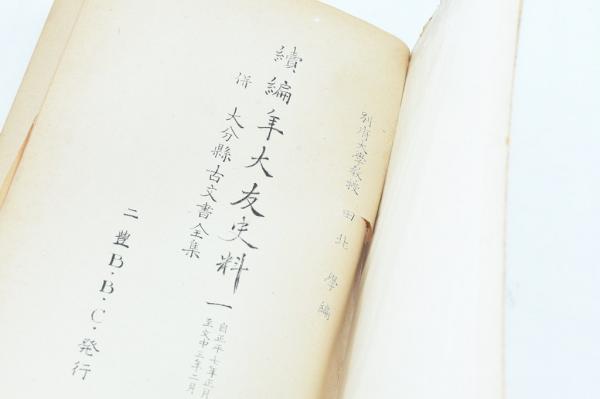 別府大學教授 田北 學編
續編年大友史料 一
自正平七年正月
至文中三年二月
併 大分縣古文書全集
二豐B・B・C・発行